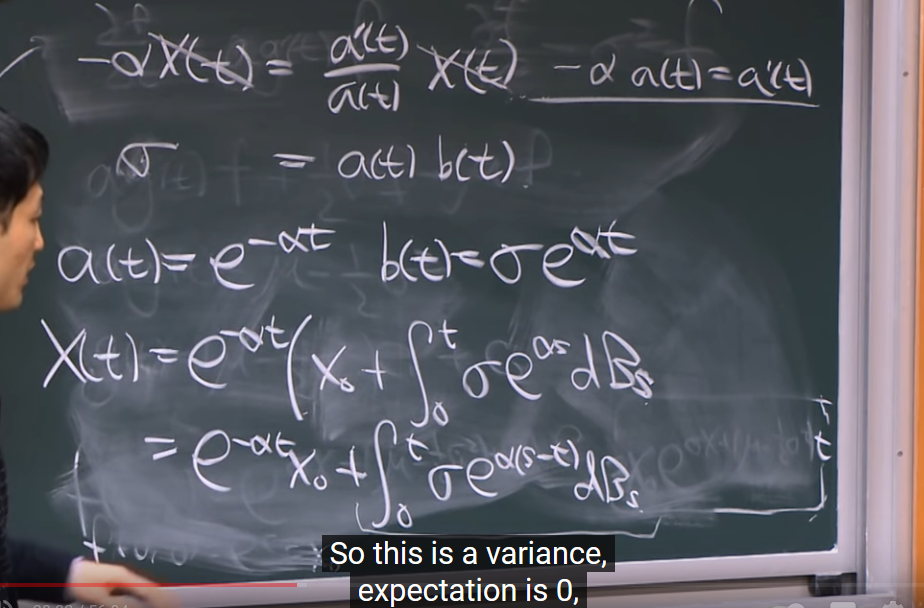 -αX(t) = a'(t)/a(t) X(t) -α a(t) = a'(t)
σ = a(t) b(t)
a(t) = e^{-αt} b(t) = σe^{αt}
X(t) = e^{-αt}(x₀ + ∫₀ᵗ σe^{αs} dB_s
= e^{-αt}x₀ + ∫₀ᵗ σe^{α(s-t)} dB_s
t
So this is a variance,
expectation is 0,